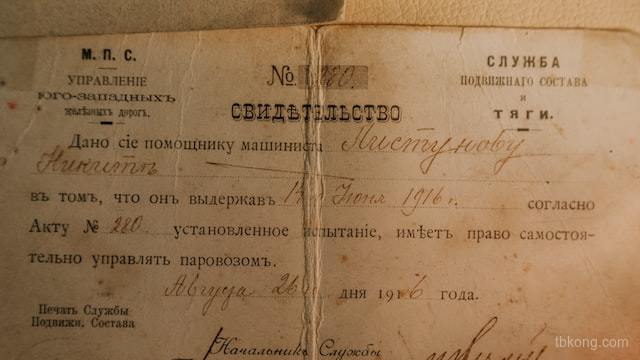 М. П. С.
УПРАВЛЕНІЕ
Юго-Западныхъ
желѣзныхъ дорогъ.
№ 280.
СЛУЖБА
ПОДВИЖНАГО СОСТАВА
и
ТЯГИ.
СВИДѢТЕЛЬСТВО
Дано сіе помощнику машиниста Пистунову
Никитѣ
въ томъ, что онъ выдержавъ Іюня 1916 г. согласно
Акту № 280 установленное испытаніе, имѣетъ право самостоя-
тельно управлять паровозомъ.
Августа 26 дня 1916 года.
Печать Службы
Подвижн. Состава
Начальникъ Службы
tbkong.com